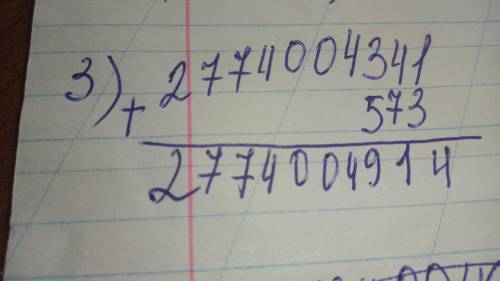 3) 2774004341
+ 573
2774004914